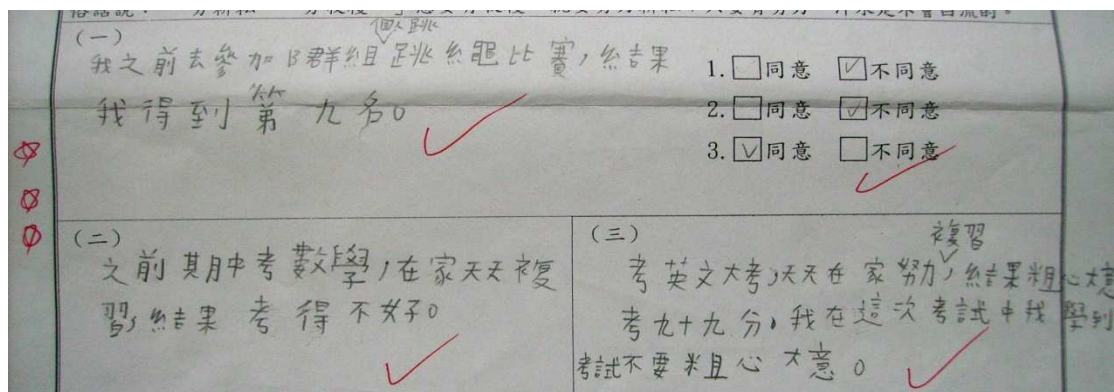 俗話說：一分耕耘，一分收穫，
(一)
個人跳
我之前去參加B群組跳繩比賽，結果
我得到第九名。
1.□同意 ☑不同意
2.□同意 ☑不同意
3.☑同意 □不同意
(二)
之前期中考數學，在家天天複
習，結果考得不好。
(三)
複習
考英文大考，天天在家努力，結果粗心大意
考九十九分，我在這次考試中我學到
考試不要粗心大意。